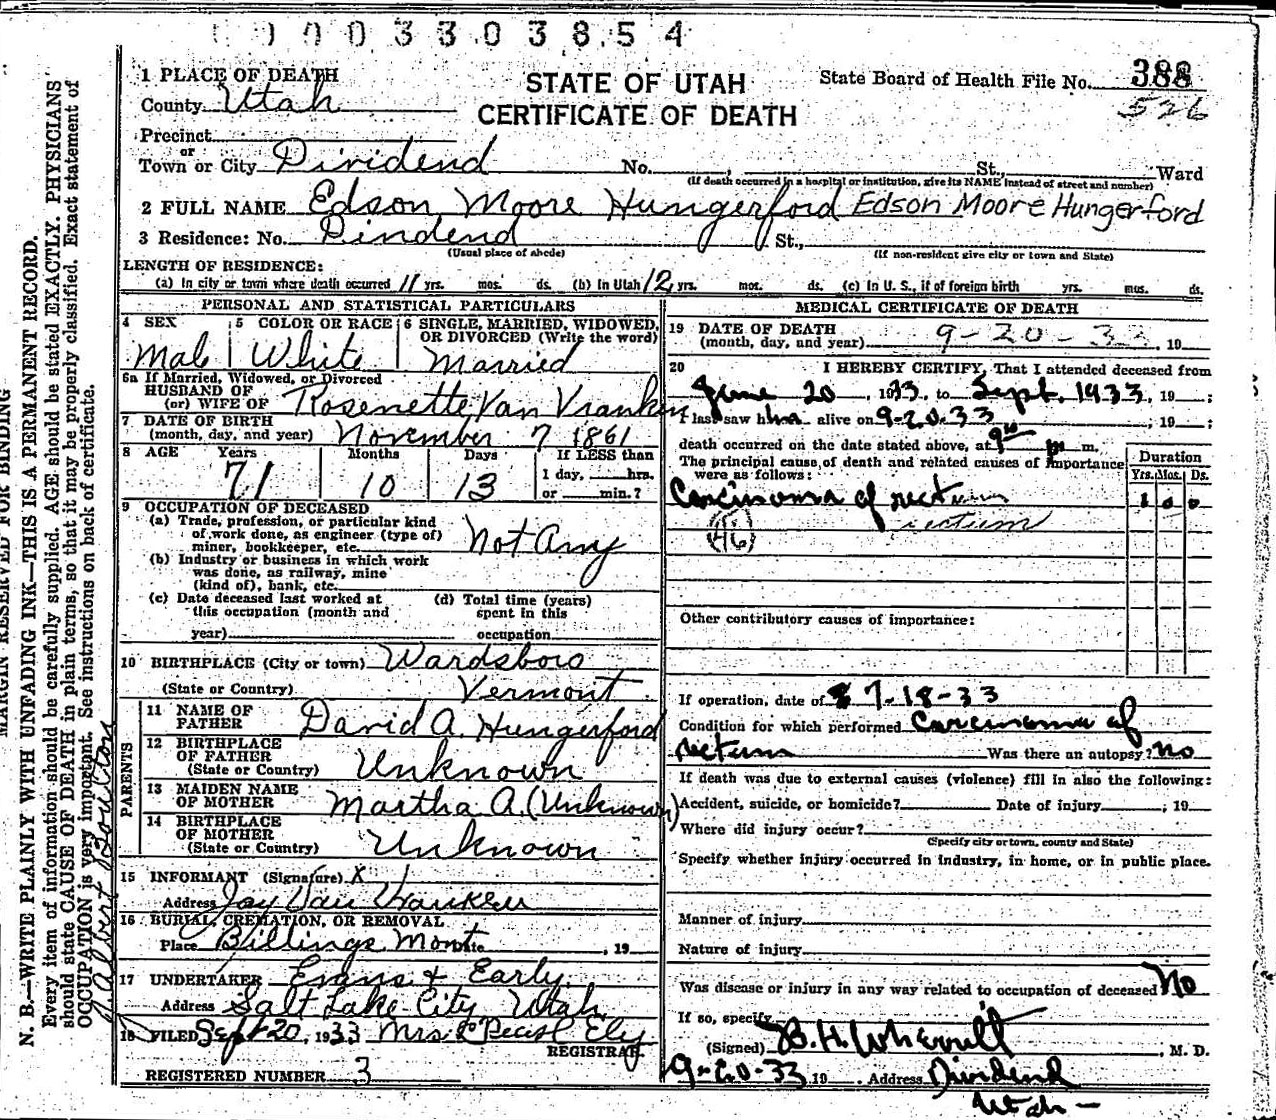 0003303854
1 PLACE OF DEATH
STATE OF UTAH
CERTIFICATE OF DEATH
State Board of Health File No. 388
526
County Utah
Precinct
or
Town or City Dividend No. St., Ward
(If death occurred in a hospital or institution, give its NAME instead of street and number)
2 FULL NAME Edson Moore Hungerford Edson Moore Hungerford
3 Residence: No. Dindend St.,
(Usual place of abode) (If non-resident give city or town and State)
LENGTH OF RESIDENCE:
(a) In city or town where death occurred 11 yrs. mos. ds. (b) In Utah 12 yrs. mos. ds. (c) In U. S., if of foreign birth yrs. mos. ds.
PERSONAL AND STATISTICAL PARTICULARS
4 SEX Male
5 COLOR OR RACE White
6 SINGLE, MARRIED, WIDOWED, OR DIVORCED (Write the word) Married
6a If Married, Widowed, or Divorced
HUSBAND OF
(or) WIFE OF Rosenette Van Vranken
7 DATE OF BIRTH
(month, day, and year) November 7 1861
8 AGE Years Months Days If LESS than
71 10 13 1 day, hrs.
or min.?
9 OCCUPATION OF DECEASED
(a) Trade, profession, or particular kind
of work done, as engineer (type of)
miner, bookkeeper, etc. Not Any
(b) Industry or business in which work
was done, as railway, mine
(kind of), bank, etc.
(c) Date deceased last worked at
this occupation (month and
year)
(d) Total time (years)
spent in this
occupation
10 BIRTHPLACE (City or town) Wardsboro
(State or Country) Vermont
PARENTS
11 NAME OF
FATHER David A. Hungerford
12 BIRTHPLACE
OF FATHER
(State or Country) Unknown
13 MAIDEN NAME
OF MOTHER Martha A. (Unknown)
14 BIRTHPLACE
OF MOTHER
(State or Country) Unknown
15 INFORMANT (Signature) X
Address Jay Van Vranken
16 BURIAL, CREMATION, OR REMOVAL
Place Billings Mont Date , 19
17 UNDERTAKER Evans & Early
Address Salt Lake City Utah
18 FILED Sept 20, 1933 Mrs Pearl Ely
REGISTRAR
REGISTERED NUMBER 3
MEDICAL CERTIFICATE OF DEATH
19 DATE OF DEATH
(month, day, and year) 9-20-33, 19
20 I HEREBY CERTIFY, That I attended deceased from
June 20, 1933, to Sept. 1933, 19 ;
I last saw him alive on 9-20-33, 19 ;
death occurred on the date stated above, at 9 p m.
The principal cause of death and related causes of importance
were as follows:
Duration
Yrs. Mos. Ds.
Carcinoma of rectum 1 0 0
rectum
(46)
Other contributory causes of importance:
If operation, date of 7-18-33
Condition for which performed Carcinoma of
rectum Was there an autopsy? no
If death was due to external causes (violence) fill in also the following:
Accident, suicide, or homicide? Date of injury , 19
Where did injury occur?
(Specify city or town, county and State)
Specify whether injury occurred in industry, in home, or in public place.
Manner of injury
Nature of injury
Was disease or injury in any way related to occupation of deceased No
If so, specify
(Signed) B. H. , M. D.
9-20-33 19 . Address Dividend
Utah
MARGIN RESERVED FOR BINDING
N. B.—WRITE PLAINLY WITH UNFADING INK—THIS IS A PERMANENT RECORD.
Every item of information should be carefully supplied. AGE should be stated EXACTLY. PHYSICIANS
should state CAUSE OF DEATH in plain terms, so that it may be properly classified. Exact statement of
OCCUPATION is very important. See instructions on back of certificate.
Boulton